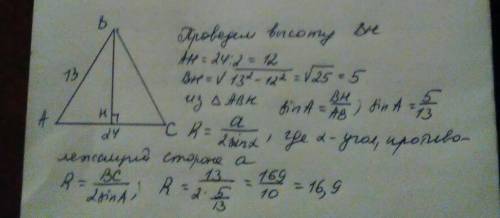 B
13
A
H
24
C
Проведем высоту BH
AH = 24:2 = 12
BH = √13²-12² = √25 = 5
из △ABH sinA = BH/AB ; sinA = 5/13
R = a/2sinα, где α-угол, противо-
лежащий стороне a
R = BC/2sinA ; R = 13/2·5/13 = 169/10 = 16,9